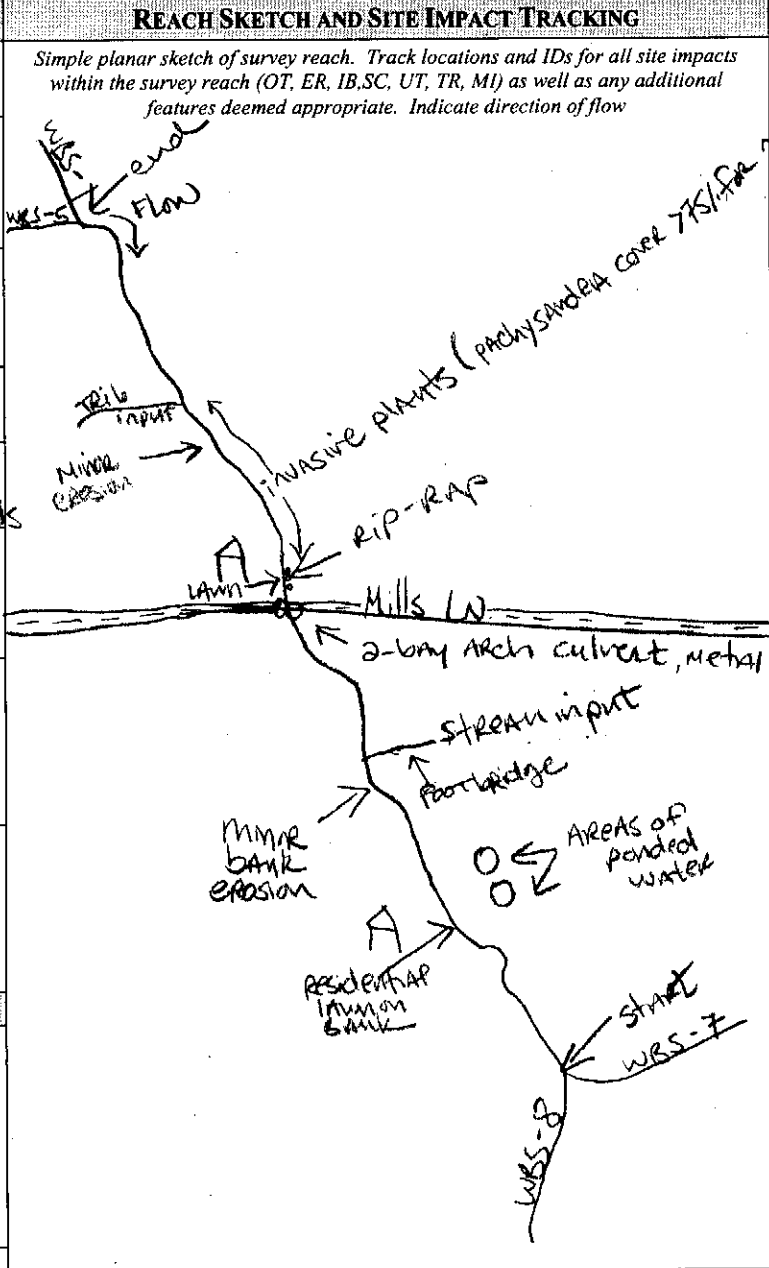 REACH SKETCH AND SITE IMPACT TRACKING
Simple planar sketch of survey reach. Track locations and IDs for all site impacts
within the survey reach (OT, ER, IB,SC, UT, TR, MI) as well as any additional
features deemed appropriate. Indicate direction of flow
end
WBS-5
FLOW
invasive plants (pachysandra cover >75% for
Trib
input
Minor
erosion
Rip-Rap
LAWN
Mills LN
2-bay Arch culvert, metal
Stream input
Footbridge
Minor
bank
erosion
Areas of
ponded
water
Residential
lawn on
bank
Start
WBS-7
WBS-8